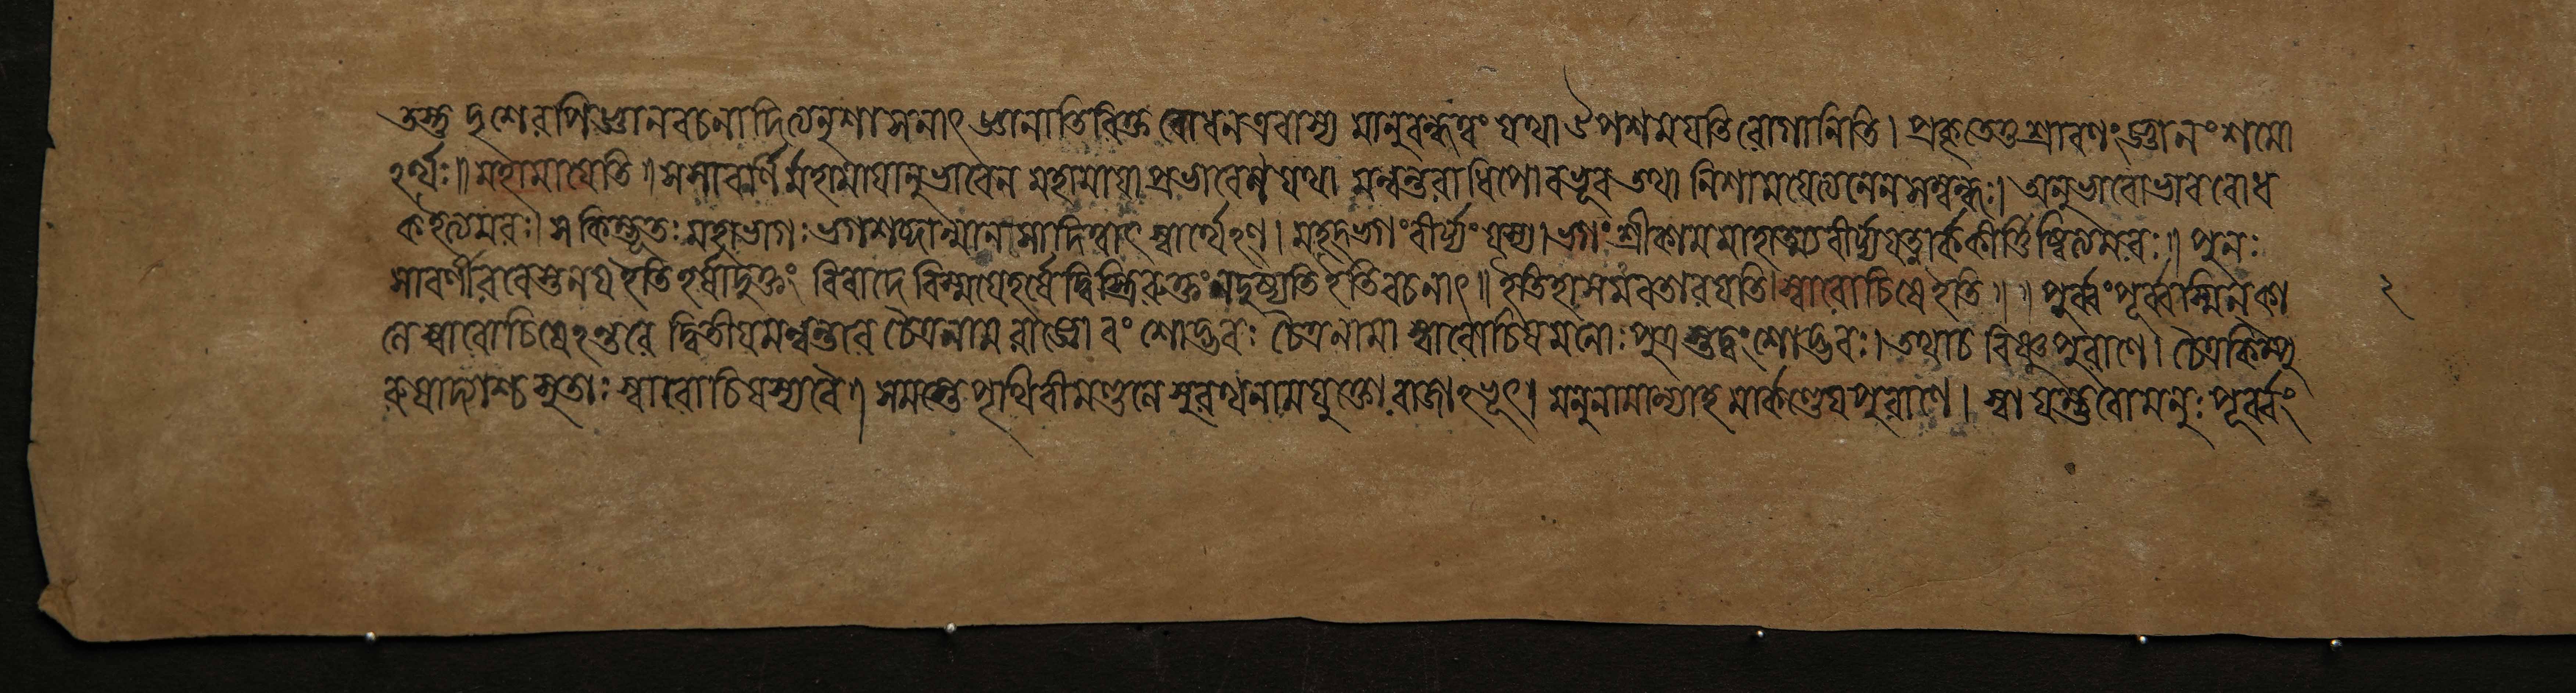 তস্তু দৃশেরপি জ্ঞানবচনাদিত্যনুশাসনাৎ জ্ঞানাতিরিক্ত বোধন এবাস্য মানুবন্ধত্বং যথা ঔপশময়তি রোগানিতি। প্রকৃতেতু শ্রাবণং জ্ঞানং শমো
ঽর্থঃ॥ মহামায়েতি॥ সসাবর্ণির্মহামায়ানুভাবেন মহামায়া প্রভাবেণ যথা মন্বন্তরাধিপো বভূব তথা নিশাময়েত্যনেন সম্বন্ধঃ। অনুভাবো ভাববোধ
কইত্যমরঃ। স কিম্ভূতঃ মহাভাগঃ ভগশব্দান্মানামাদিত্বাৎ স্বার্থেঽণ। মহদ্ভগং বীর্য্যং যস্য। ভগং শ্রীকামমাহাত্ম্যবীর্য্যযত্নার্ককীর্ত্তিষ্বিত্যমরঃ॥ পুনঃ
সাবর্ণীরবেস্তনয় ইতি হর্ষাদুক্তং বিবাদে বিস্ময়েহর্ষে দ্বিস্ত্রিরুক্তং নদুষ্যতি ইতি বচনাৎ॥ ইতিহাসমবতারয়তি। স্বারোচিষে ইতি॥ ॥ পুর্ব্বং পূর্ব্বস্মিন কা ২
লে স্বারোচিষেঽন্তরে দ্বিতীয়মন্বন্তরে চৈত্রনাম রাজ্ঞো বংশোদ্ভবঃ চৈত্রনামা স্বারোচিষমনোঃ পুত্রস্তদ্বংশোদ্ভবঃ। তথাচ বিষ্ণুপুরাণে। চৈত্রকিম্পু
রুষাদ্যাশ্চ সুতাঃ স্বারোচিষস্যবৈ। সমস্তে পৃথিবীমণ্ডলে সুরথনামযুক্তো রাজাঽভূৎ। মনুনামান্যাহ মার্কণ্ডেয়পুরাণে। স্বায়ম্ভুবোমনুঃ পূর্ব্বং